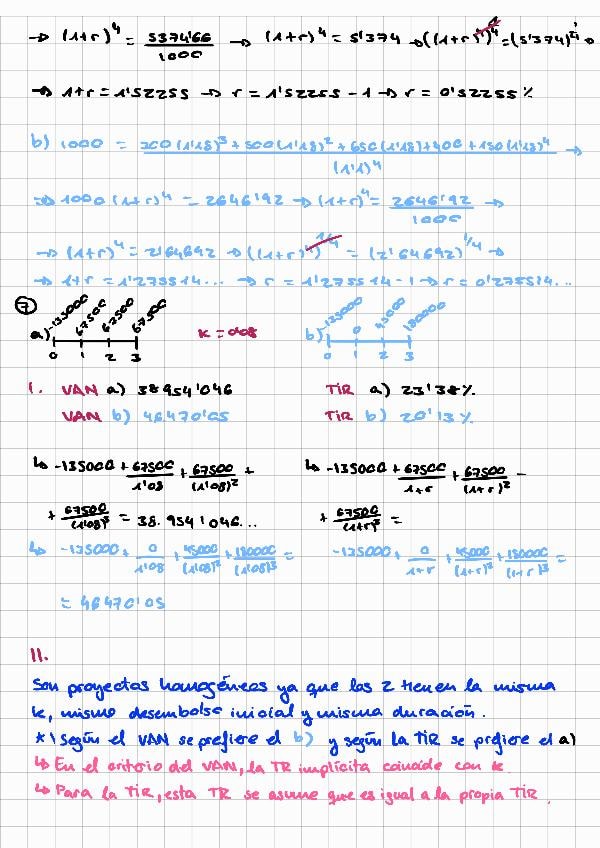 → (1+r)^4 = 5374'66/1000 → (1+r)^4 = 5'374 → ((1+r)^4)^1/4 = (5'374)^1/4 →
→ 1+r = 1'52255 → r = 1'52255 - 1 → r = 0'52255 %
b) 1000 = 200(1'18)^3 + 500(1'18)^2 + 650(1'18) + 400 + 150(1'18)^4 / (1'1)^4 →
⇒ 1000(1+r)^4 = 2646'92 → (1+r)^4 = 2646'92/1000 →
→ (1+r)^4 = 2'64692 → ((1+r)^4)^1/4 = (2'64692)^1/4 →
→ 1+r = 1'275514... → r = 1'275514 - 1 → r = 0'275514...
7
a) -135000 67500 67500 67500 k = 0'08 b) -135000 0 45000 180000
0 1 2 3 0 1 2 3
1. VAN a) 38954'046 TIR a) 23'38%
VAN b) 46470'05 TIR b) 20'13%
↳ -135000 + 67500/1'08 + 67500/(1'08)^2 + ↳ -135000 + 67500/1+r + 67500/(1+r)^2 -
+ 67500/(1'08)^3 = 38.954'046... + 67500/(1+r)^3 =
↳ -135000 + 0/1'08 + 45000/(1'08)^2 + 180000/(1'08)^3 = -135000 + 0/1+r + 45000/(1+r)^2 + 180000/(1+r)^3 =
= 46470'05
11.
Son proyectos homogéneos ya que los 2 tienen la misma
k, mismo desembolso inicial y misma duración.
*) Según el VAN se prefiere el b) y según la TIR se prefiere el a)
↳ En el criterio del VAN, la TR implícita coincide con k.
↳ Para la TIR, esta TR se asume que es igual a la propia TIR.